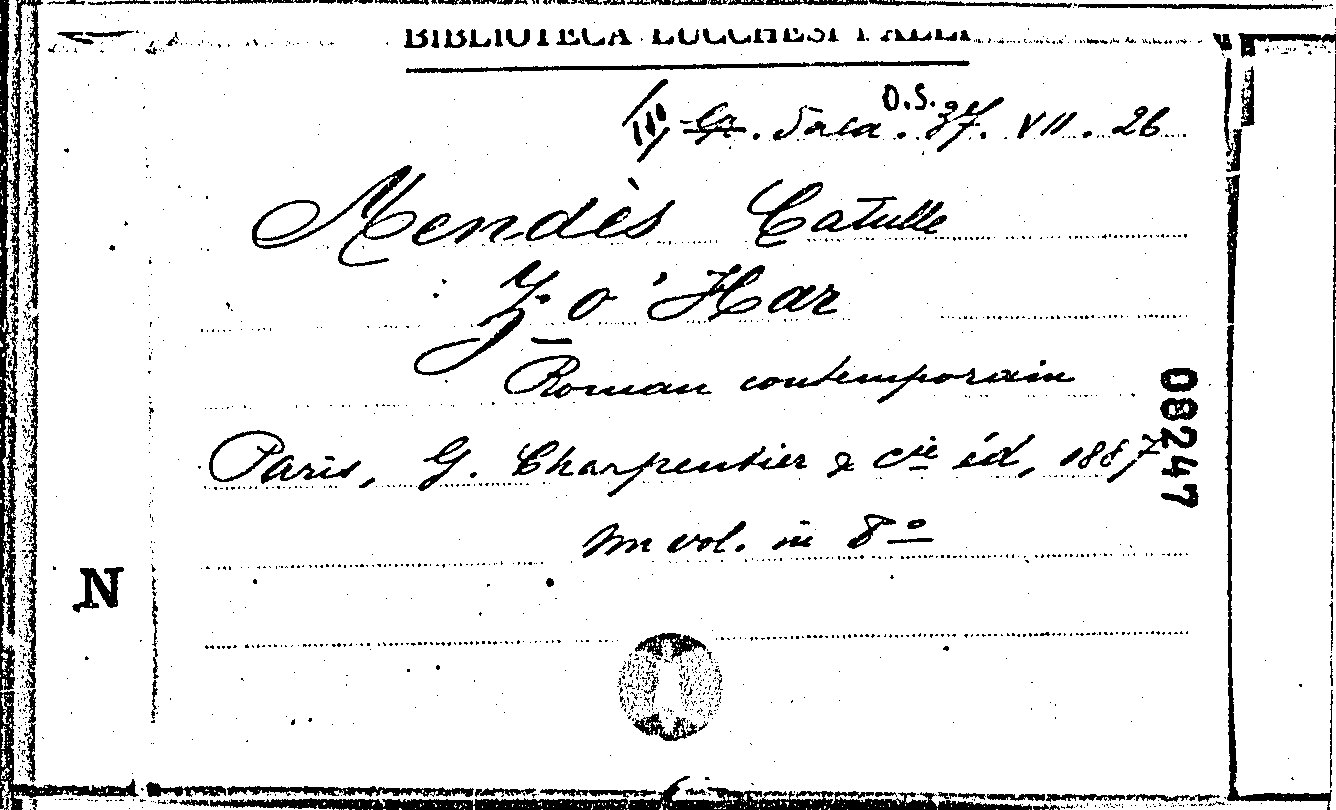 BIBLIOTECA LUCCHESI PALLI
Sala. O.S. 37. VII. 26
Mendès Catulle
Zo'Har
Roman contemporain
Paris, G. Charpentier & cie éd, 1887
un vol. in 8º
08247
N